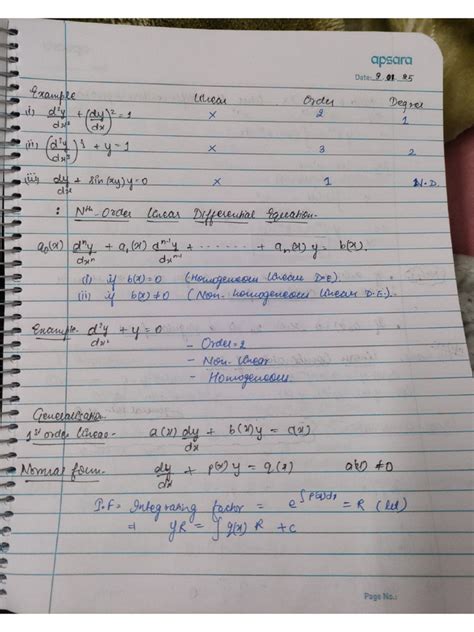 apsara
Date: 9.01.25
Example Linear Order Degree
(i) d²y/dx² + (dy/dx)² = 1 × 2 1
(ii) (d³y/dx³)² + y = 1 × 3 2
(iii) dy/dx + sin(xy) y = 0 × 1 N.D.
: Nth-Order Linear Differential Equation.
a₀(x) dⁿy/dxⁿ + a₁(x) dⁿ⁻¹y/dxⁿ⁻¹ + ....... + aₙ(x) y = b(x).
(i) if b(x) = 0 (Homogeneous Linear D.E).
(ii) if b(x) ≠ 0 (Non-homogeneous Linear D.E).
Example d²y/dx² + y = 0
- Order = 2
- Non-linear
- Homogeneous
Generalisation
1st order linear- a(x) dy/dx + b(x) y = c(x)
Normal form. dy/dx + p(x) y = q(x) a(x) ≠ 0
I.F = Integrating factor = e^∫p(x)dx = R (let)
⇒ yR = ∫ q(x) R + C
Page No.: